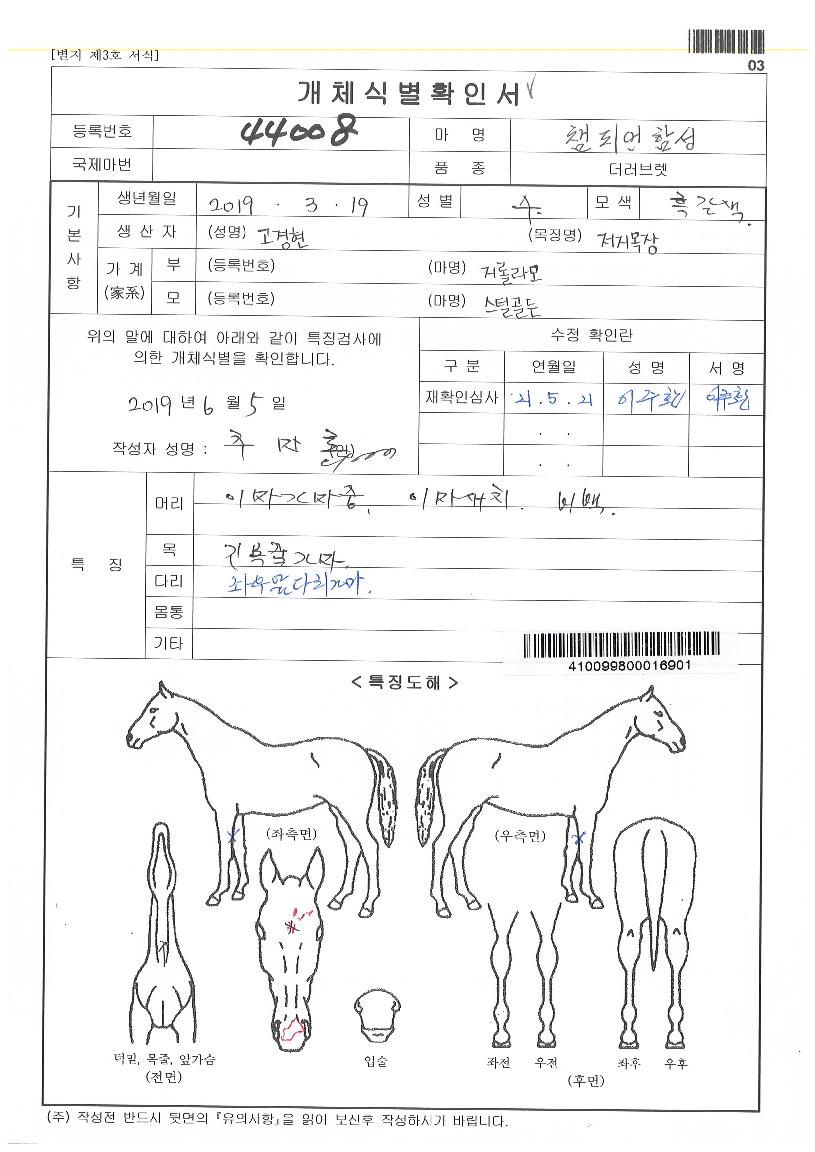 [별지 제3호 서식]
03
개체식별확인서
등록번호 44008 마 명 챔피언함성
국제마번 품 종 더러브렛
기본사항
생년월일 2019 . 3 . 19 성별 수. 모색 흑갈색.
생산자 (성명) 고경현 (목장명) 저지목장
가계(家系) 부 (등록번호) (마명) 저롤라모
모 (등록번호) (마명) 스틸골드
위의 말에 대하여 아래와 같이 특징검사에
의한 개체식별을 확인합니다.
2019 년 6 월 5 일
작성자 성명 :
수정 확인란
구분 연월일 성명 서명
재확인심사 21 . 5 . 21 이주환 이주환
. .
. .
특 징
머리 이마가마중, 비백.
목
다리 좌우앞다리가마.
몸통
기타
410099800016901
< 특징도해 >
(좌측면) (우측면)
턱밑, 목줄, 앞가슴
(전면)
입술
좌전 우전 좌후 우후
(후면)
(주) 작성전 반드시 뒷면의 『유의사항』을 읽어 보신후 작성하시기 바랍니다.